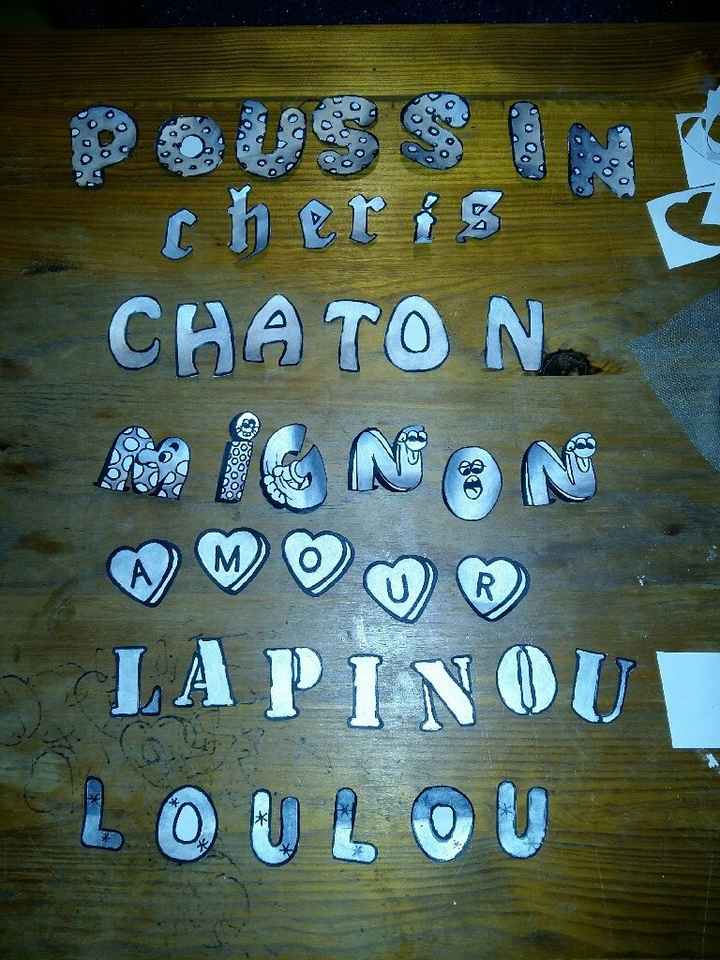 POUSSIN
cheris
CHATON
MiGNON
AMOUR
LAPINOU
LOULOU